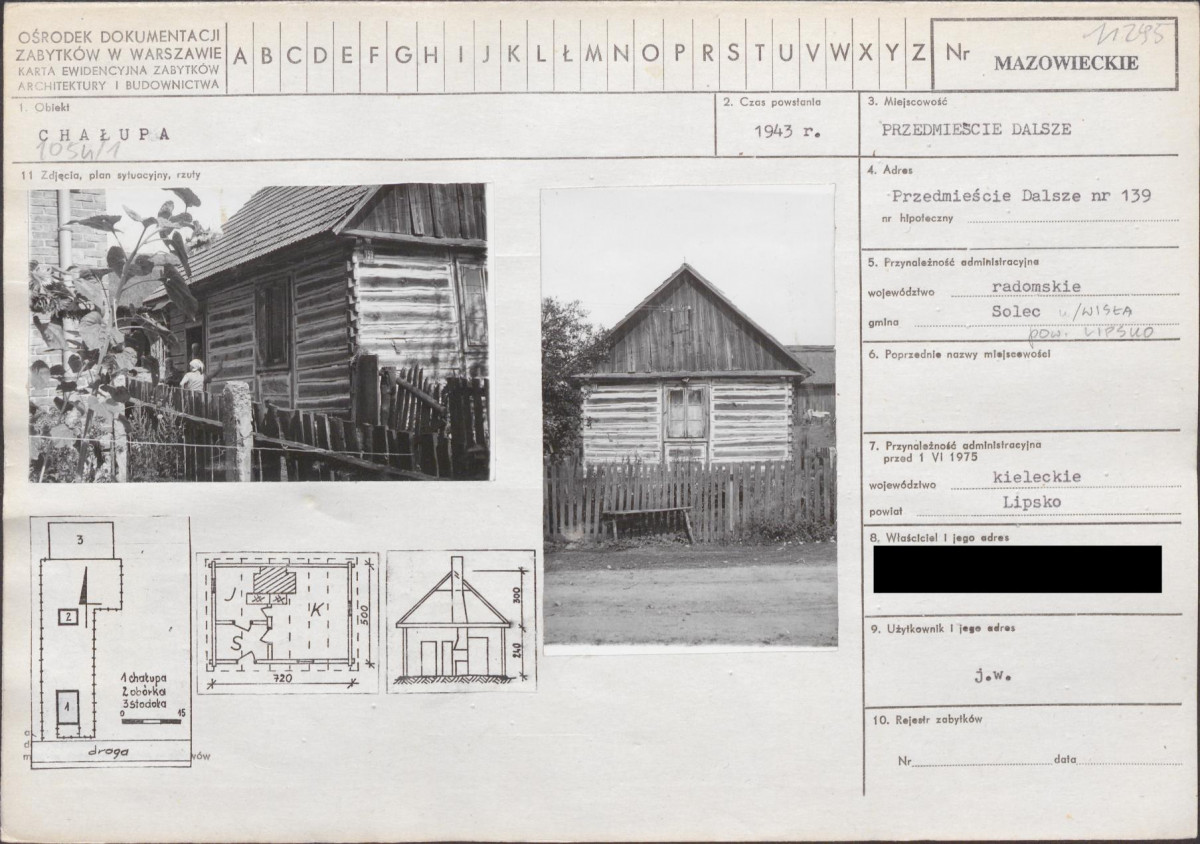 OŚRODEK DOKUMENTACJI
ZABYTKÓW W WARSZAWIE
KARTA EWIDENCYJNA ZABYTKÓW
ARCHITEKTURY I BUDOWNICTWA
A B C D E F G H I J K L Ł M N O P R S T U V W X Y Z
Nr
11295
MAZOWIECKIE
1. Obiekt
CHAŁUPA
1054/1
2. Czas powstania
1943 r.
3. Miejscowość
PRZEDMIEŚCIE DALSZE
11 Zdjęcia, plan sytuacyjny, rzuty
4. Adres
Przedmieście Dalsze nr 139
nr hipoteczny
5. Przynależność administracyjna
województwo radomskie
gmina Solec n/WISŁĄ
pow. LIPSKO
6. Poprzednie nazwy miejscowości
7. Przynależność administracyjna
przed 1 VI 1975
województwo kieleckie
powiat Lipsko
8. Właściciel i jego adres
9. Użytkownik i jego adres
j.w.
10. Rejestr zabytków
Nr data
3
2
1
1 chałupa
2 obórka
3 stodoła
0 15
droga
wów
J
K
S
500
720
300
240